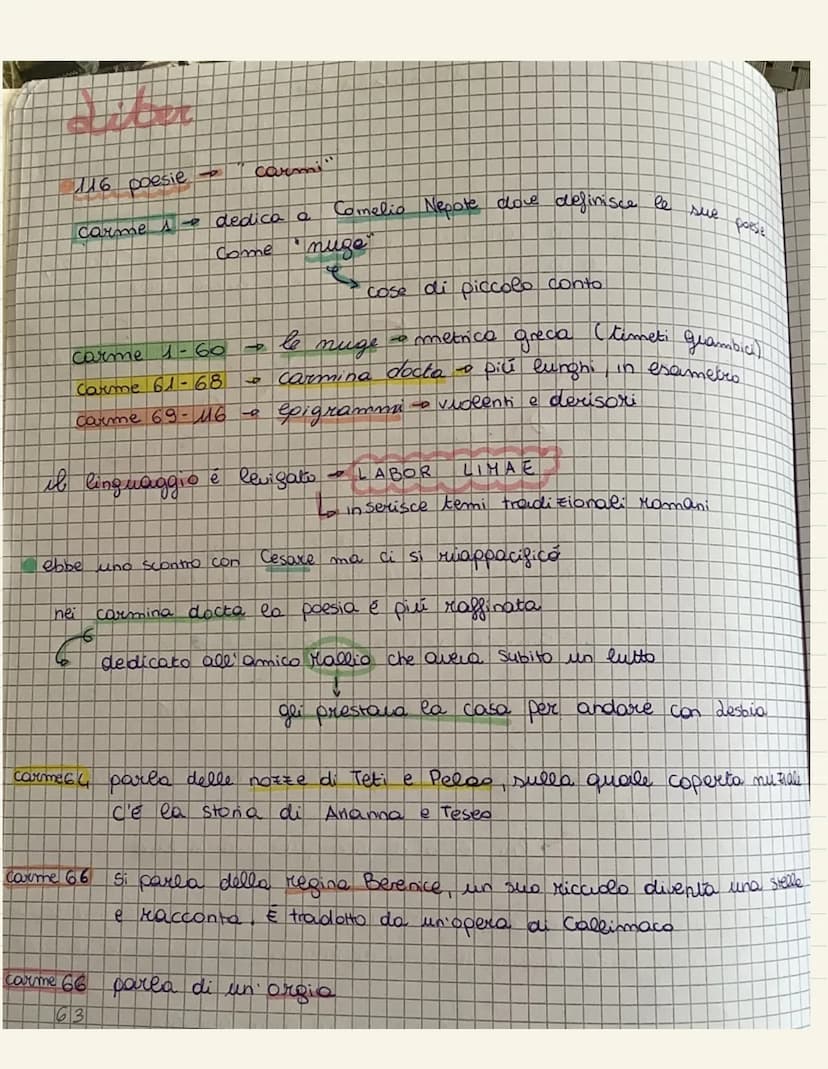 Liber
116 poesie → "carmi"
carme 1 → dedica a Cornelio Nepote dove definisce le sue poesie
come "nuge"
cose di piccolo conto
carme 1-60 → le nuge → metrica greca (trimeti giambici)
carme 61-68 → carmina docta → più lunghi, in esametro
carme 69-116 → epigrammi → violenti e derisori
il linguaggio é levigato → LABOR LIMAE
inserisce temi tradizionali romani
ebbe uno scontro con Cesare ma ci si riappacificó
nei carmina docta la poesia é piú raffinata
dedicato all'amico Mallio che aveva subito un lutto
gli prestava la casa per andare con Lesbia
carme 64 parla delle nozze di Teti e Peleo, sulla quale coperta nuziale
c'é la storia di Arianna e Teseo
carme 66 si parla della regina Berenice, un suo ricciolo diventa una stella
e racconta. É tradotto da un'opera di Callimaco
carme 66 parla di un'orgia
63